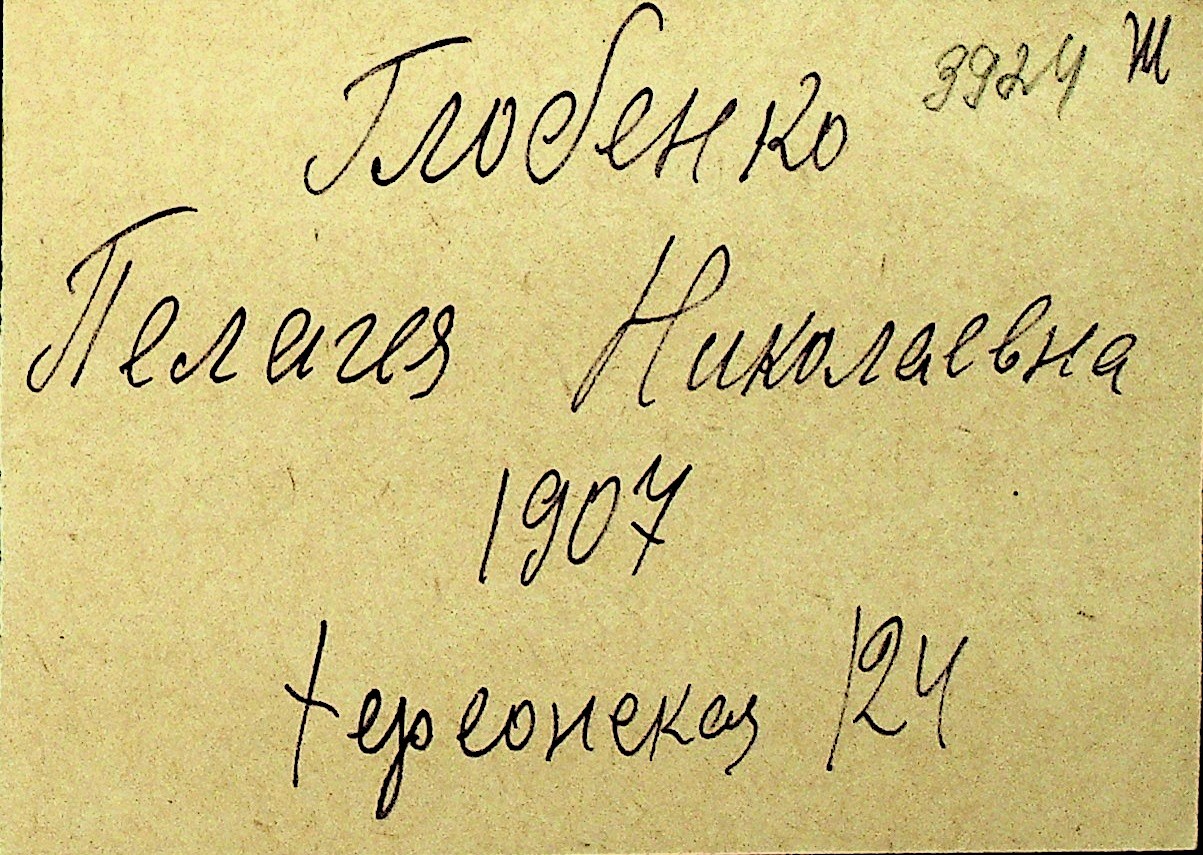 3924 Ж
Глобенко
Пелагея Николаевна
1907
Херсонская 124